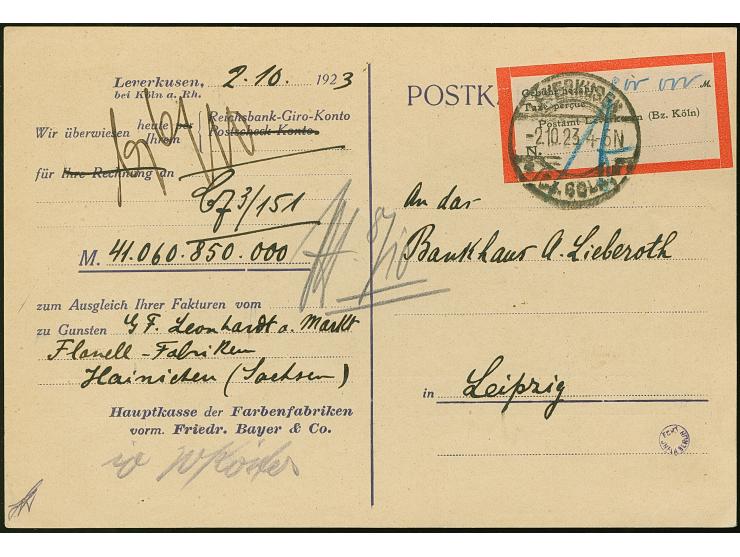 Leverkusen, 2.10. 1923
bei Köln a. Rh.
Wir überwiesen heute per Reichsbank-Giro-Konto
Ihrem Postscheck-Konto
für Ihre Rechnung an
M. 41.060.850.000
zum Ausgleich Ihrer Fakturen vom
zu Gunsten G F. Leonhardt a. Markt
Flanell-Fabriken
Hainichen (Sachsen)
Hauptkasse der Farbenfabriken
vorm. Friedr. Bayer & Co.
POSTK
Gebühr bezahlt
Taxe perçue
M.
Postamt Leverkusen (Bz. Köln)
N.
LEVERKUSEN
-2.10.23.4-5N
An das
Bankhaus A. Lieberoth
in Leipzig